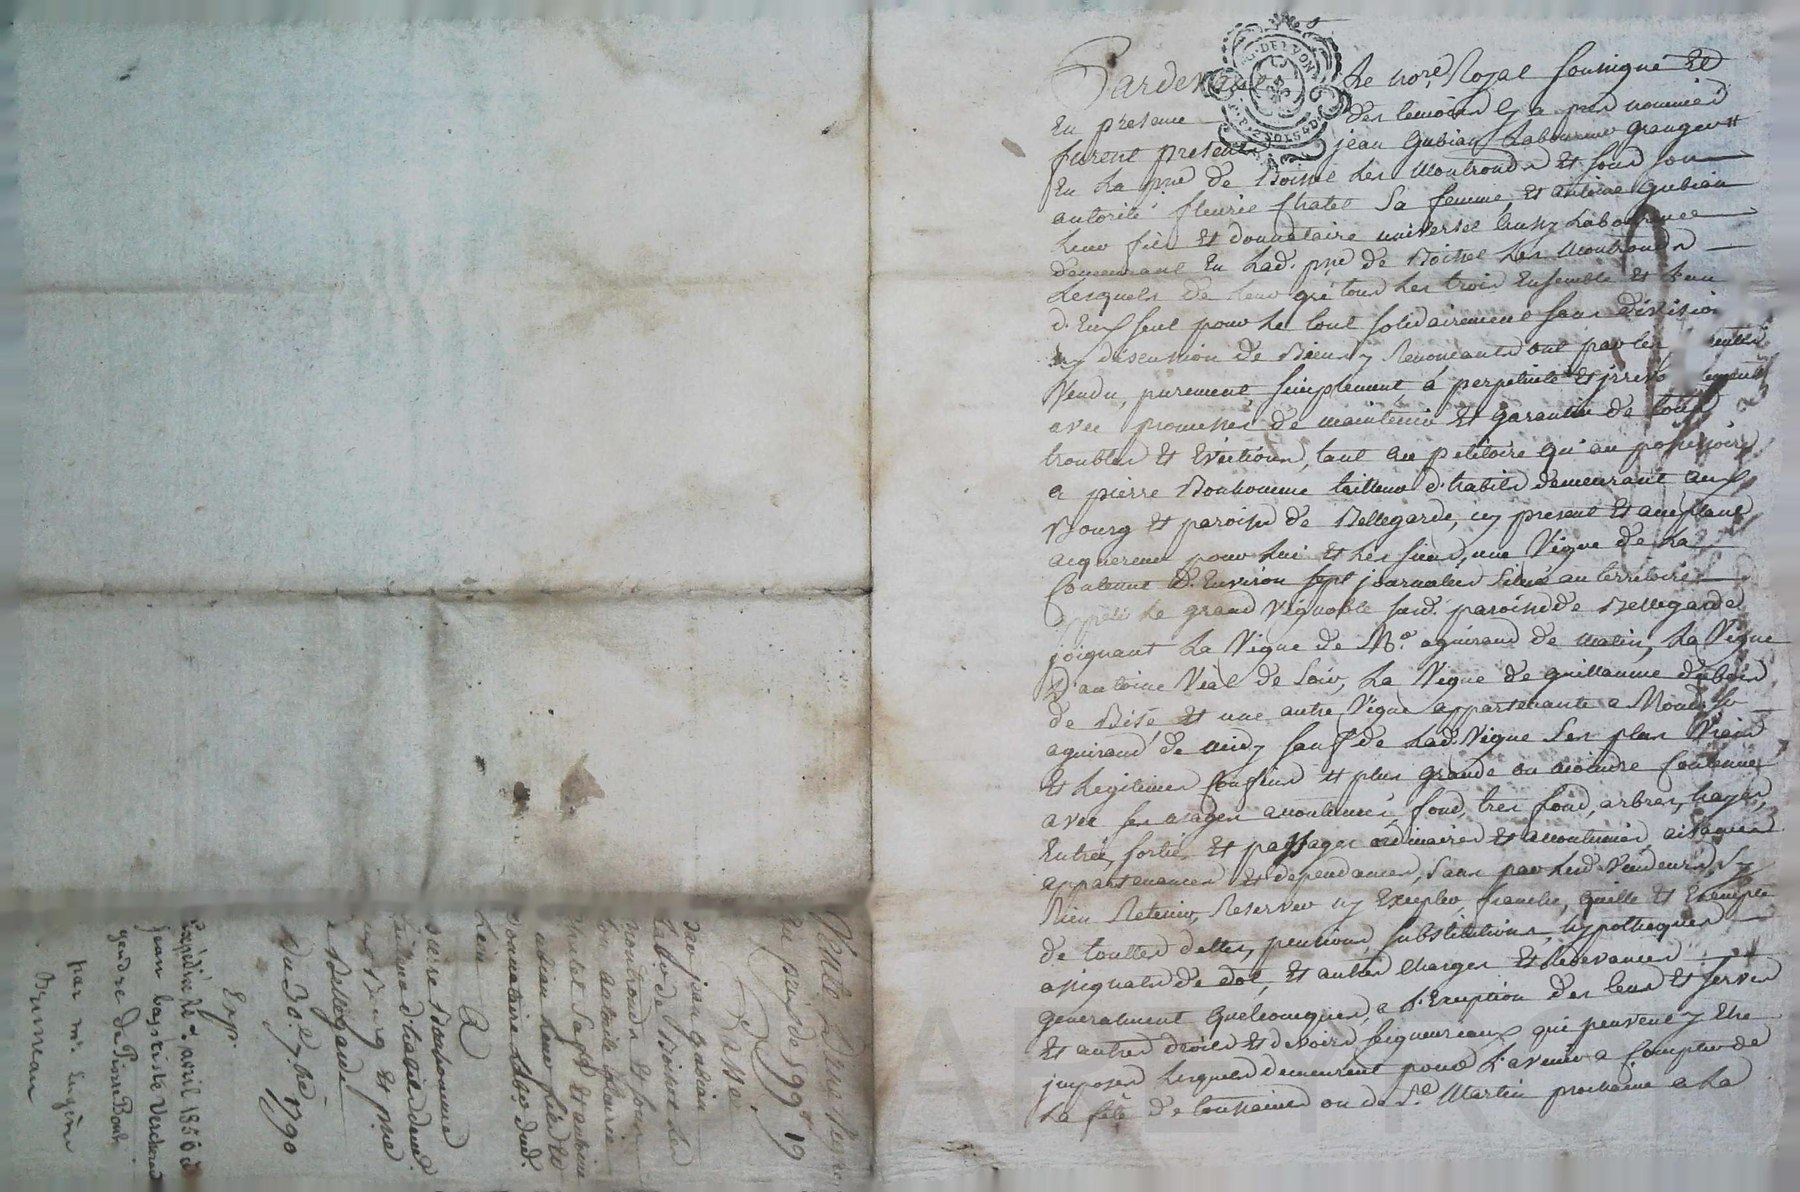 Pardevant Le nore Royal soussigné Et
En presence des temoins cy a pres nommés
furent presents jean Gubian Laboureur Granger
En La psse de Boisset Les Montronds Et sous son
autorité fleurie Chatel Sa femme, Et antoine gubian
Leur fils Et donnataire universel aussy Laboureur
demeurant En Lad. psse de Boisset Les Montronds
Lesquels de Leur gré tous Les trois Ensemble Et L'un
d'Eux seul pour Le tout solidairement sans division
ny discussion de Biens y Renoncants ont par Les
Vendu, purement, simplement, á perpetuité Et
avec promesses de maintenir Et garantir de tous
troubles Et Evictions, tant au petitoire qu'au possessoire
a pierre Bonhomme tailleur d'habits demeurant aux
Bourg Et paroisse de Bellegarde, icy present Et acceptant
acquereur pour Lui Et Les siens, une Vigne de La
Contenue d'Environ sept journalées Située au territoire
appellé Le grand Vignoble susd. paroisse de Bellegarde
joignant La Vigne de Mr. aguiraud de matin, La Vigne
d'antoine Vial de Soir, La Vigne de guillaume dubois
de Bise Et une autre Vigne appartenante a Mond. Sr
aguiraud de midy sauf de Lad. Vigne Ses plus Vrais
Et Legitimes Confins Et plus grande ou moindre Contenue
avec ses usages accoutumés fond, tres fond, arbres, hayes,
Entrées, sorties Et passages ordinaires Et accoutumés, aisances
appartenances Et dependances, Sans par Lesd. Vendeurs s'y
Rien Retenir, Reserver ny Excepter, franche, quitte Et Exempte
de touttes dettes, pensions, substitutions, hypotheques
assignats de dot, Et autres Charges Et Redevances
generalment quelconques, a L'Exception des Cens Et servis
Et autres droits Et devoirs seigneuriaux qui peuvent y Etre
imposés Lesquels demeurent pour L'avenir a Compter de
La fête de toussaints ou de St. Martin prochaine a La
G. DE LYON
P. 2 SOLS 4 D.
Vente D'une Vigne
au prix de 599# 19
Passée
par jean gubian
Labr de Boisset Les
montronds Et sous
son autorité fleurie
chatel Sa fe Et antoine
gubian Leur fils Et
donnataire Labr dud.
Lieu
A
pierre Bonhomme
tailleur d'habits demeut
aux Bourg Et psse
de Bellegarde
Du 30. 7bre 1790
Exp.
Expédié le 2 avril 1856 à
Jean baptiste Verchere
gendre de Pierre Bonh
par Me Eugène
Bruneau